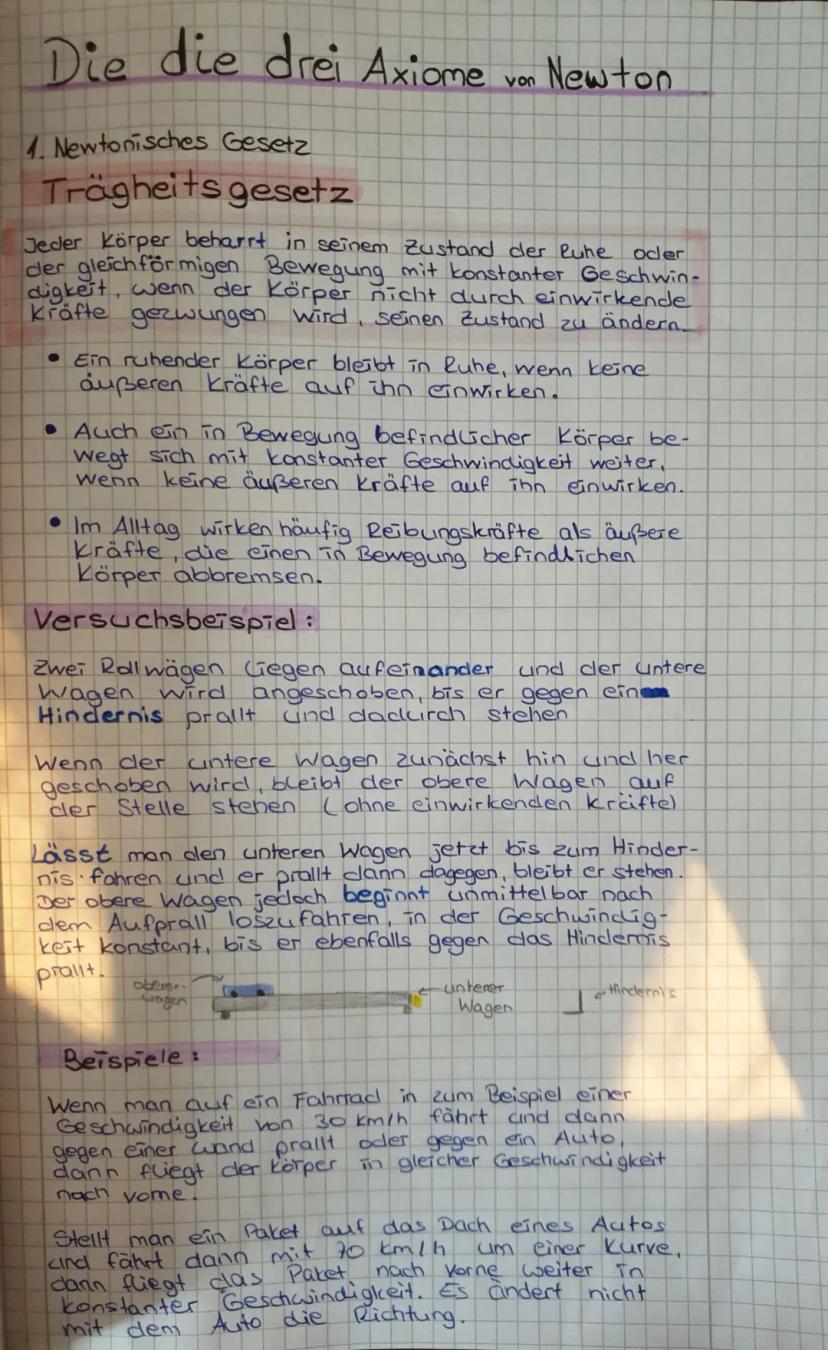 Die die drei Axiome von Newton
1. Newtonisches Gesetz
Trägheitsgesetz
Jeder Körper beharrt in seinem Zustand der Ruhe oder
der gleichförmigen Bewegung mit konstanter Geschwin-
digkeit, wenn der Körper nicht durch einwirkende
Kräfte gezwungen wird, seinen Zustand zu ändern.
• Ein ruhender Körper bleibt in Ruhe, wenn keine
äußeren Kräfte auf ihn einwirken.
• Auch ein in Bewegung befindlicher Körper be-
wegt sich mit konstanter Geschwindigkeit weiter,
wenn keine äußeren Kräfte auf ihn einwirken.
• Im Alltag wirken häufig Reibungskräfte als äußere
Kräfte, die einen in Bewegung befindlichen
Körper abbremsen.
Versuchsbeispiel:
Zwei Rollwägen liegen aufeinander und der untere
Wagen wird angeschoben, bis er gegen ein
Hindernis prallt und dadurch stehen
Wenn der untere Wagen zunächst hin und her
geschoben wird, bleibt der obere Wagen auf
der Stelle stehen (ohne einwirkenden Kräfte)
Lässt man den unteren Wagen jetzt bis zum Hinder-
nis fahren und er prallt dann dagegen, bleibt er stehen.
Der obere Wagen jedoch beginnt unmittelbar nach
dem Aufprall loszufahren, in der Geschwindig-
keit konstant, bis er ebenfalls gegen das Hindernis
prallt.
oberer
wagen
unterer
Wagen
Hindernis
Beispiele:
Wenn man auf ein Fahrrad in zum Beispiel einer
Geschwindigkeit von 30 km/h fährt und dann
gegen einer Wand prallt oder gegen ein Auto,
dann fliegt der Körper in gleicher Geschwindigkeit
nach vorne.
Stellt man ein Paket auf das Dach eines Autos
und fährt dann mit 70 km/h um einer Kurve,
dann fliegt das Paket nach vorne weiter in
konstanter Geschwindigkeit. Es ändert nicht
mit dem Auto die Richtung.